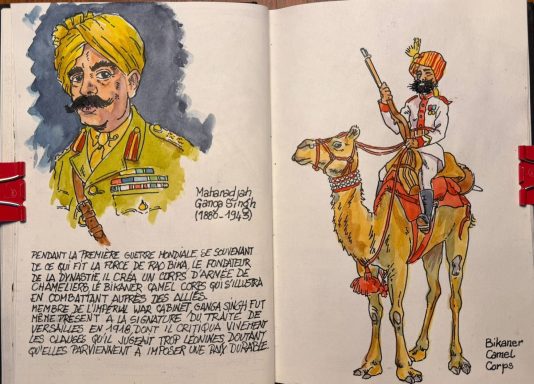 Maharadjah
Ganga Singh
(1880-1943)
PENDANT LA PREMIÈRE GUERRE MONDIALE, SE SOUVENANT
DE CE QUI FIT LA FORCE DE RAO BIKA, LE FONDATEUR
DE LA DYNASTIE, IL CRÉA UN CORPS D'ARMÉE DE
CHAMELIERS, LE BIKANER CAMEL CORPS QUI S'ILLUSTRA
EN COMBATTANT AUPRÈS DES ALLIÉS.
MEMBRE DE L'IMPERIAL WAR CABINET, GANGA SINGH FUT
MÊME PRÉSENT À LA SIGNATURE DU TRAITÉ DE
VERSAILLES EN 1918, DONT IL CRITIQUA VIVEMENT
LES CLAUSES QU'IL JUGENT TROP LÉONINES, DOUTANT
QU'ELLES PARVIENNENT À IMPOSER UNE PAIX DURABLE.
Bikaner
Camel
Corps